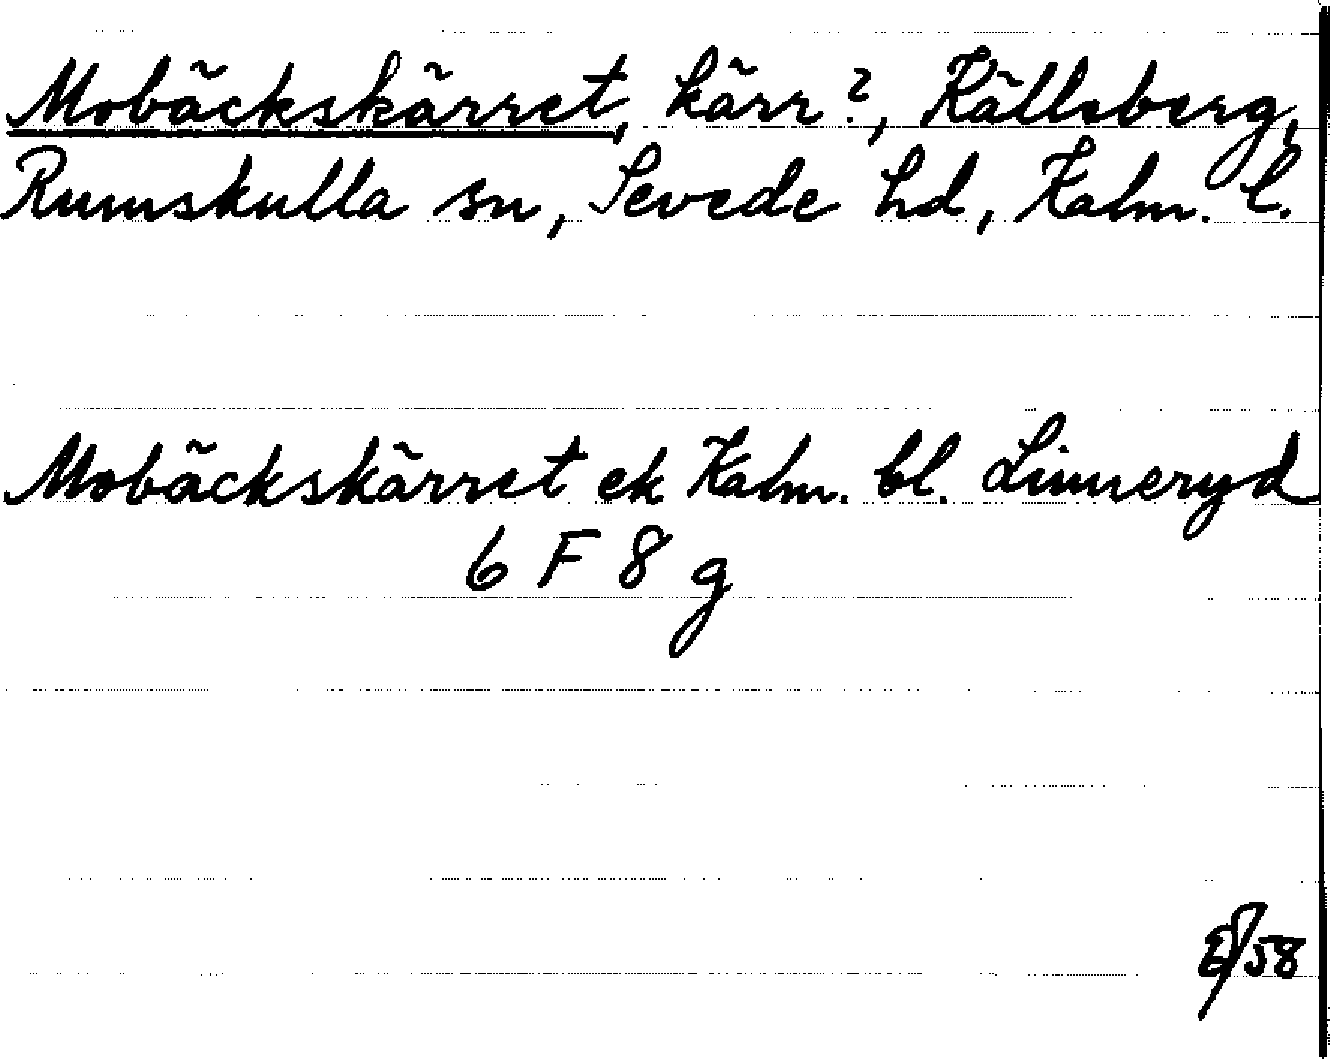 Mobäckskärret, kärr?, Källeberg,
Rumskulla sn, Sevede hd, Kalm. l.
Mobäckskärret ek Kalm. bl. Linneryd
6 F 8 g
58